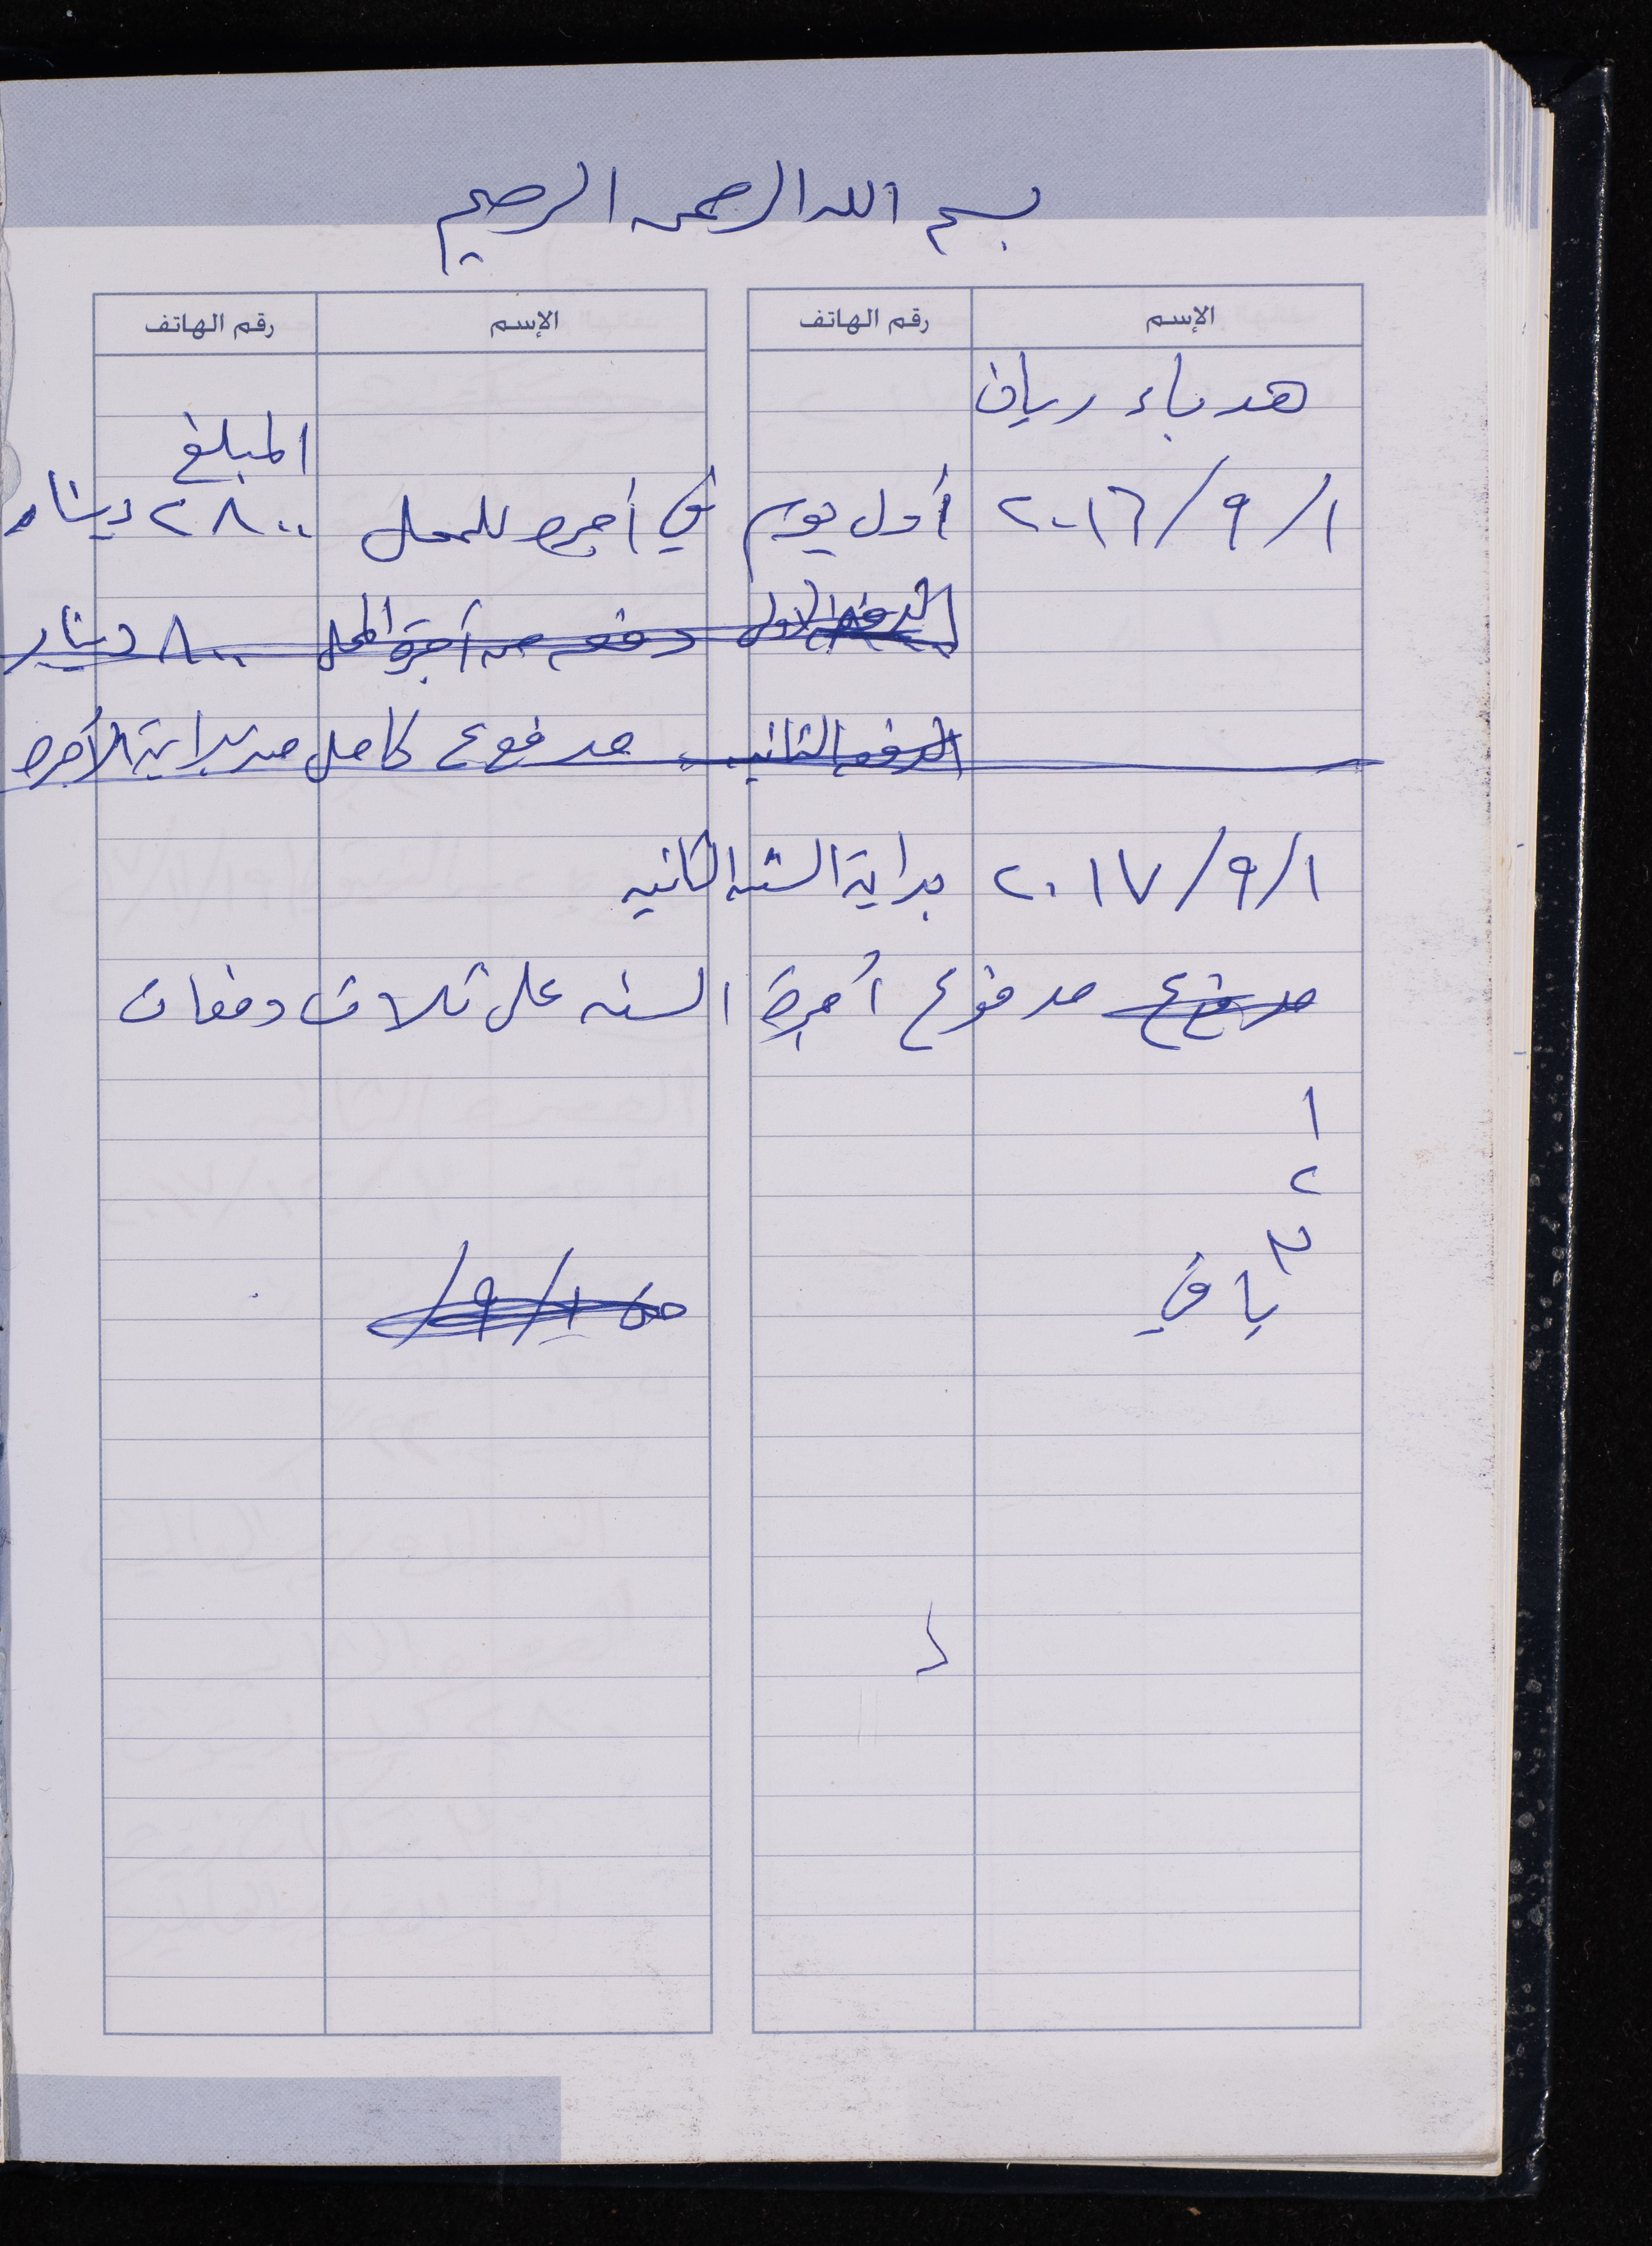 بسم الله الرحمن الرحيم
الإسم رقم الهاتف الإسم رقم الهاتف
هدباء ريان
المبلغ
٢٠١٦/٩/١ أول يوم في أجرة للمحل ٢٨٠٠ دينار
الدفعة الاولى دفعه من أجرة المحل ٨٠٠ دينار
الدفعه الثانيه مدفوع كامل من بداية الأجره
٢٠١٧/٩/١ بداية السنه الثانيه
مدفوع مدفوع أجرة السنه على ثلاث دفعات
١
٢
٣
باقي ٩/١/